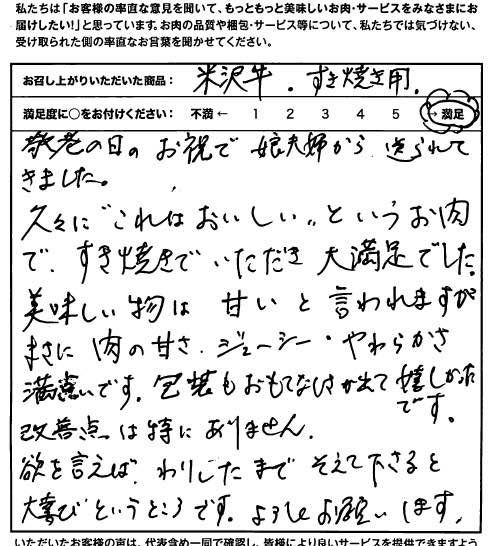 私たちは「お客様の率直な意見を聞いて、もっともっと美味しいお肉・サービスをみなさまにお
届けしたい!」と思っています。お肉の品質や梱包・サービス等について、私たちでは気づけない、
受け取られた側の率直なお言葉を聞かせてください。
お召し上がりいただいた商品： 米沢牛．すき焼き用．
満足度に○をお付けください： 不満 ← 1 2 3 4 5 → 満足
敬老の日の お祝で 娘夫婦から 送られて
きました。
久々に"これはおいしい"というお肉
で、すき焼きで いただき 大満足でした。
美味しい物は 甘い と 言われますが
まさに 肉の甘さ、ジューシー・やわらかさ
満点いです。包装もおもてなしさが出て 嬉しかった
です。
改善点は特にありません。
欲を言えば、わりしたまで そえて下さると
大喜びというところです。よろしくお願いします。
いただいたお客様の声は、代表含め一同で確認し、皆様により良いサービスを提供できますよう